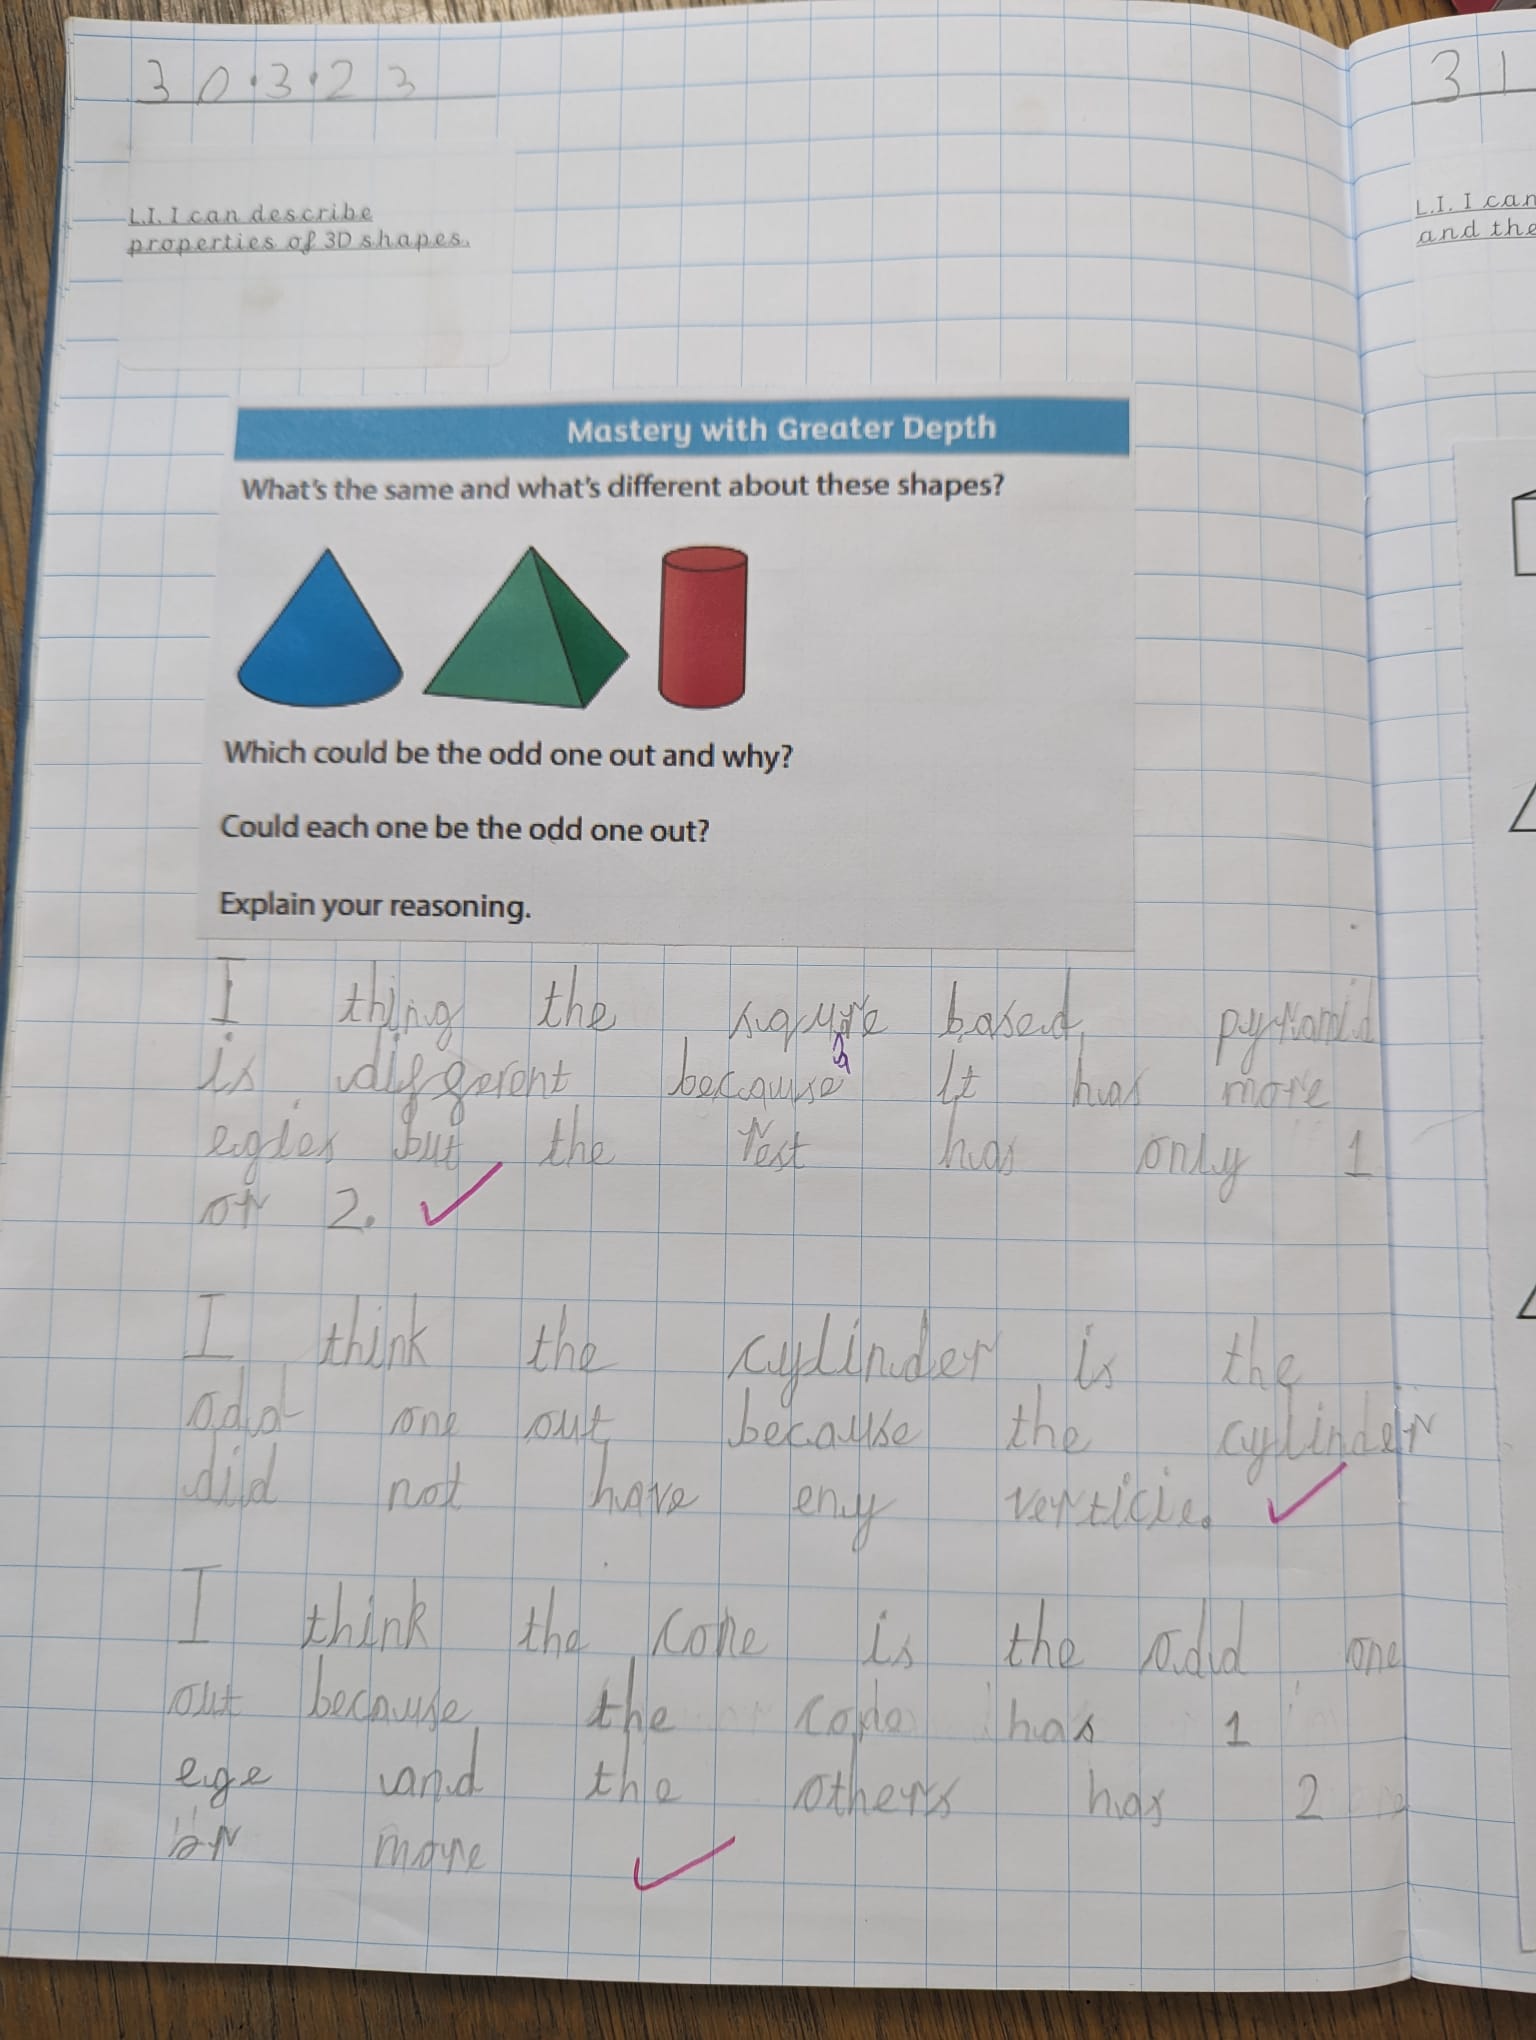 30.3.23
L.I. I can describe
properties of 3D shapes.
Mastery with Greater Depth
What's the same and what's different about these shapes?
Which could be the odd one out and why?
Could each one be the odd one out?
Explain your reasoning.
I thing the squre based pyramid
a
is difgerent because It has more
egdes but the rest has only 1
or 2.
I think the cylinder is the
odd one out because the cylinder
did not have eny verticie.
I think the cone is the odd one
out because the cone has 1
ege and the others has 2
or more
31
L.I. I can
and the